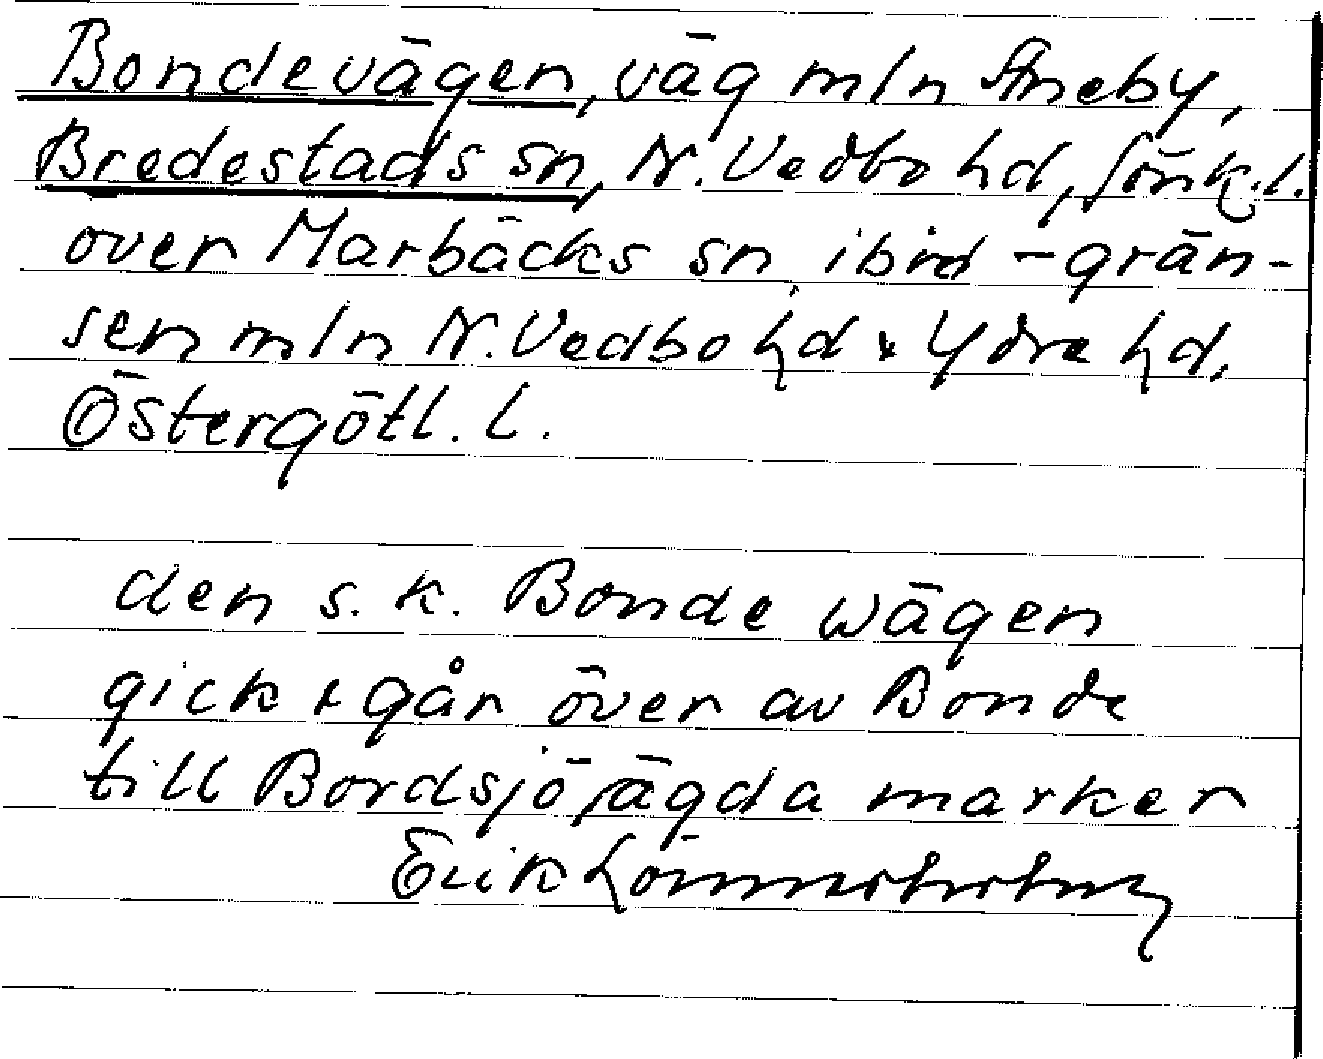 Bondevägen, väg mln Aneby,
Bredestads sn, N. Vedbo hd, Jönk. l.
över Marbäcks sn ibid - grän-
sen mln N. Vedbo hd & Ydre hd,
Östergötl. l.
den s. k. Bonde wägen
gick & går över av Bonde
till Bordsjö ägda marker
Erik